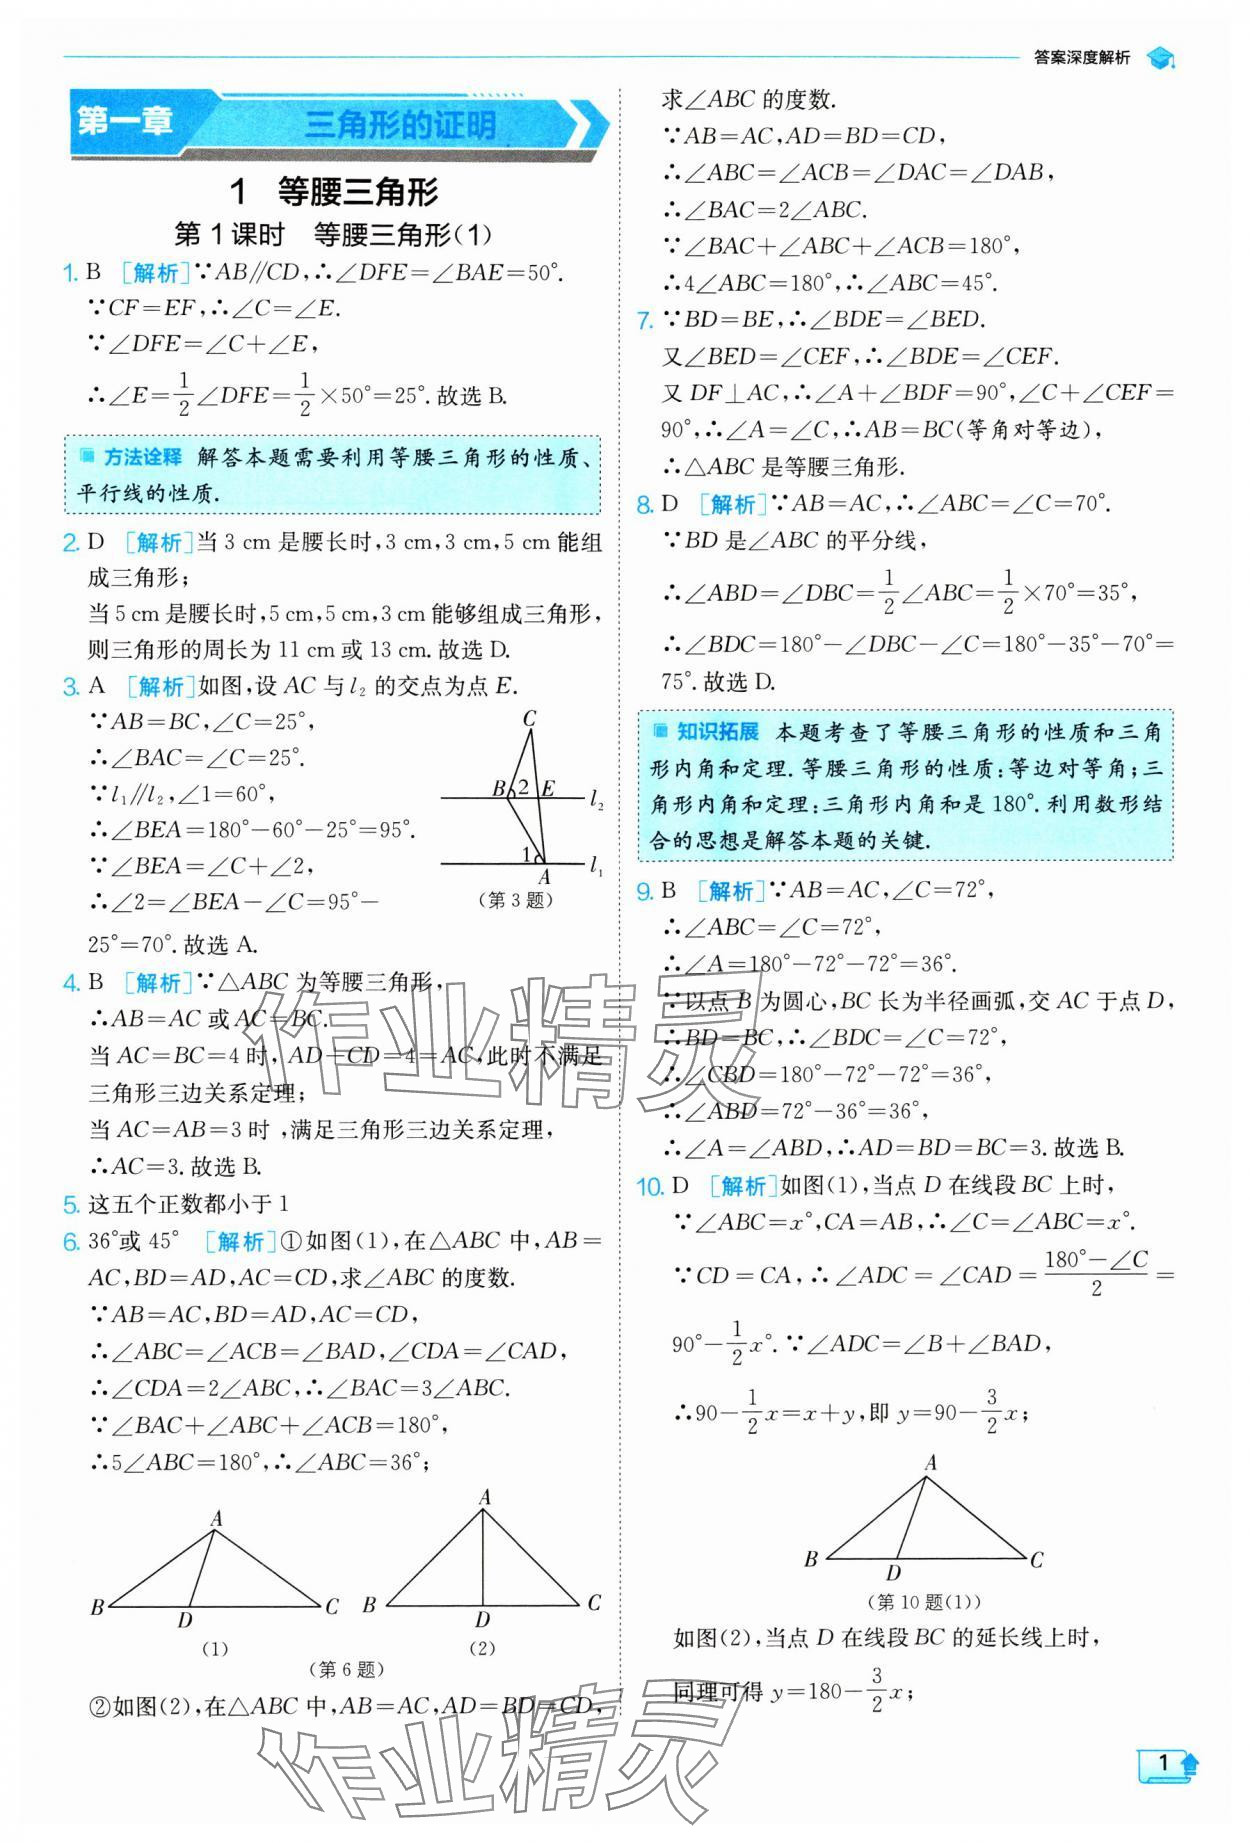 答案深度解析
第一章 三角形的证明
1 等腰三角形
第1课时 等腰三角形(1)
1. B [解析]∵AB∥CD,∴∠DFE=∠BAE=50°.
∵CF=EF,∴∠C=∠E.
∵∠DFE=∠C+∠E,
∴∠E=1/2∠DFE=1/2×50°=25°.故选B.
方法诠释 解答本题需要利用等腰三角形的性质、
平行线的性质.
2. D [解析]当3 cm是腰长时,3 cm,3 cm,5 cm能组
成三角形;
当5 cm是腰长时,5 cm,5 cm,3 cm能够组成三角形,
则三角形的周长为11 cm或13 cm.故选D.
3. A [解析]如图,设AC与l₂的交点为点E.
∵AB=BC,∠C=25°,
∴∠BAC=∠C=25°.
∵l₁∥l₂,∠1=60°,
∴∠BEA=180°-60°-25°=95°.
∵∠BEA=∠C+∠2,
∴∠2=∠BEA-∠C=95°-
25°=70°.故选A.
C
B 2 E l₂
1 l₁
A
(第3题)
4. B [解析]∵△ABC为等腰三角形,
∴AB=AC或AC=BC.
当AC=BC=4时,AD+CD=4=AC,此时不满足
三角形三边关系定理;
当AC=AB=3时,满足三角形三边关系定理,
∴AC=3.故选B.
5. 这五个正数都小于1
6. 36°或45° [解析]①如图(1),在△ABC中,AB=
AC,BD=AD,AC=CD,求∠ABC的度数.
∵AB=AC,BD=AD,AC=CD,
∴∠ABC=∠ACB=∠BAD,∠CDA=∠CAD,
∴∠CDA=2∠ABC,∴∠BAC=3∠ABC.
∵∠BAC+∠ABC+∠ACB=180°,
∴5∠ABC=180°,∴∠ABC=36°;
A
B D C
(1)
A
B D C
(2)
(第6题)
②如图(2),在△ABC中,AB=AC,AD=BD=CD,
求∠ABC的度数.
∵AB=AC,AD=BD=CD,
∴∠ABC=∠ACB=∠DAC=∠DAB,
∴∠BAC=2∠ABC.
∵∠BAC+∠ABC+∠ACB=180°,
∴4∠ABC=180°,∴∠ABC=45°.
7. ∵BD=BE,∴∠BDE=∠BED.
又∠BED=∠CEF,∴∠BDE=∠CEF.
又DF⊥AC,∴∠A+∠BDF=90°,∠C+∠CEF=
90°,∴∠A=∠C,∴AB=BC(等角对等边),
∴△ABC是等腰三角形.
8. D [解析]∵AB=AC,∴∠ABC=∠C=70°.
∵BD是∠ABC的平分线,
∴∠ABD=∠DBC=1/2∠ABC=1/2×70°=35°,
∴∠BDC=180°-∠DBC-∠C=180°-35°-70°=
75°.故选D.
知识拓展 本题考查了等腰三角形的性质和三角
形内角和定理.等腰三角形的性质:等边对等角;三
角形内角和定理:三角形内角和是180°.利用数形结
合的思想是解答本题的关键.
9. B [解析]∵AB=AC,∠C=72°,
∴∠ABC=∠C=72°,
∴∠A=180°-72°-72°=36°.
∵以点B为圆心,BC长为半径画弧,交AC于点D,
∴BD=BC,∴∠BDC=∠C=72°,
∴∠CBD=180°-72°-72°=36°,
∴∠ABD=72°-36°=36°,
∴∠A=∠ABD,∴AD=BD=BC=3.故选B.
10. D [解析]如图(1),当点D在线段BC上时,
∵∠ABC=x°,CA=AB,∴∠C=∠ABC=x°.
∵CD=CA,∴∠ADC=∠CAD=(180°-∠C)/2=
90°-1/2x°.∵∠ADC=∠B+∠BAD,
∴90-1/2x=x+y,即y=90-3/2x;
A
B D C
(第10题(1))
如图(2),当点D在线段BC的延长线上时,
同理可得y=180-3/2x;
作业精灵
作业精灵
1